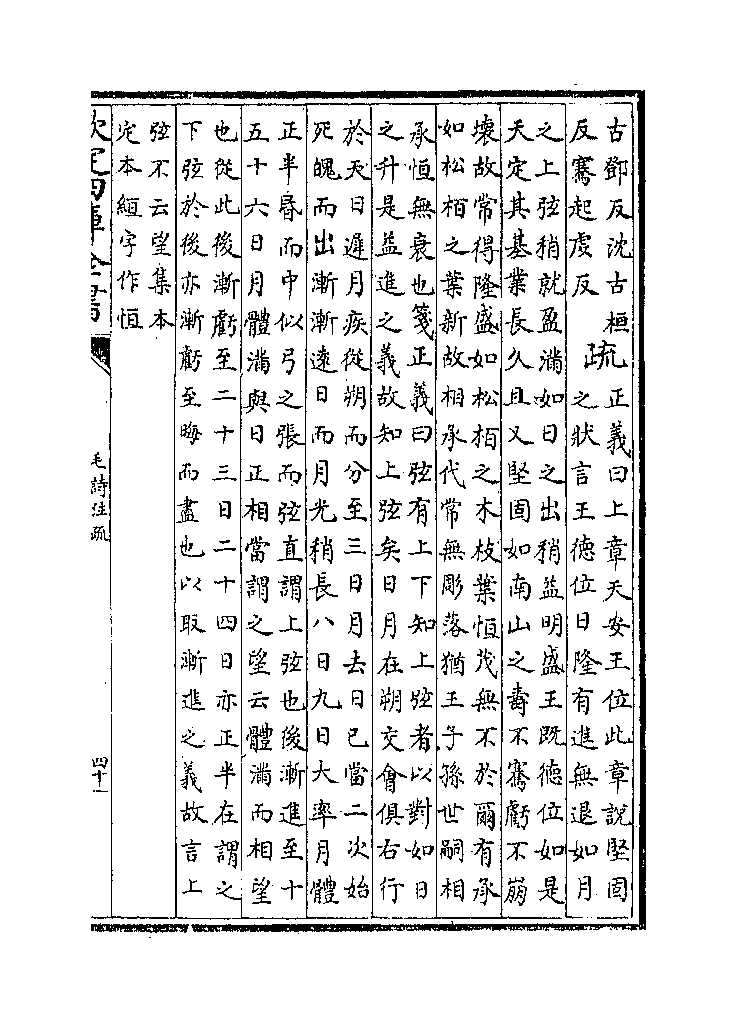 古鄧反沈古桓
反騫起虔反
疏
正義曰上章天安王位此章說堅固
之狀言王德位日隆有進無退如月
之上弦稍就盈滿如日之出稍益明盛王既德位如是
天定其基業長久且又堅固如南山之壽不騫虧不崩
壞故常得隆盛如松栢之木枝葉恒茂無不於爾有承
如松栢之葉新故相承代常無彫落猶王子孫世嗣相
承恒無衰也箋正義曰弦有上下知上弦者以對如日
之升是益進之義故知上弦矣日月在朔交會俱右行
於天日遲月疾從朔而分至三日月去日已當二次始
死魄而出漸漸遠日而月光稍長八日九日大率月體
正半昬而中似弓之張而弦直謂上弦也後漸進至十
五十六日月體滿與日正相當謂之望云體滿而相望
也從此後漸虧至二十三日二十四日亦正半在謂之
下弦於後亦漸虧至晦而盡也以取漸進之義故言上
弦不云望集本
定本絙字作恒
欽定四庫全書
毛詩注疏
四十一